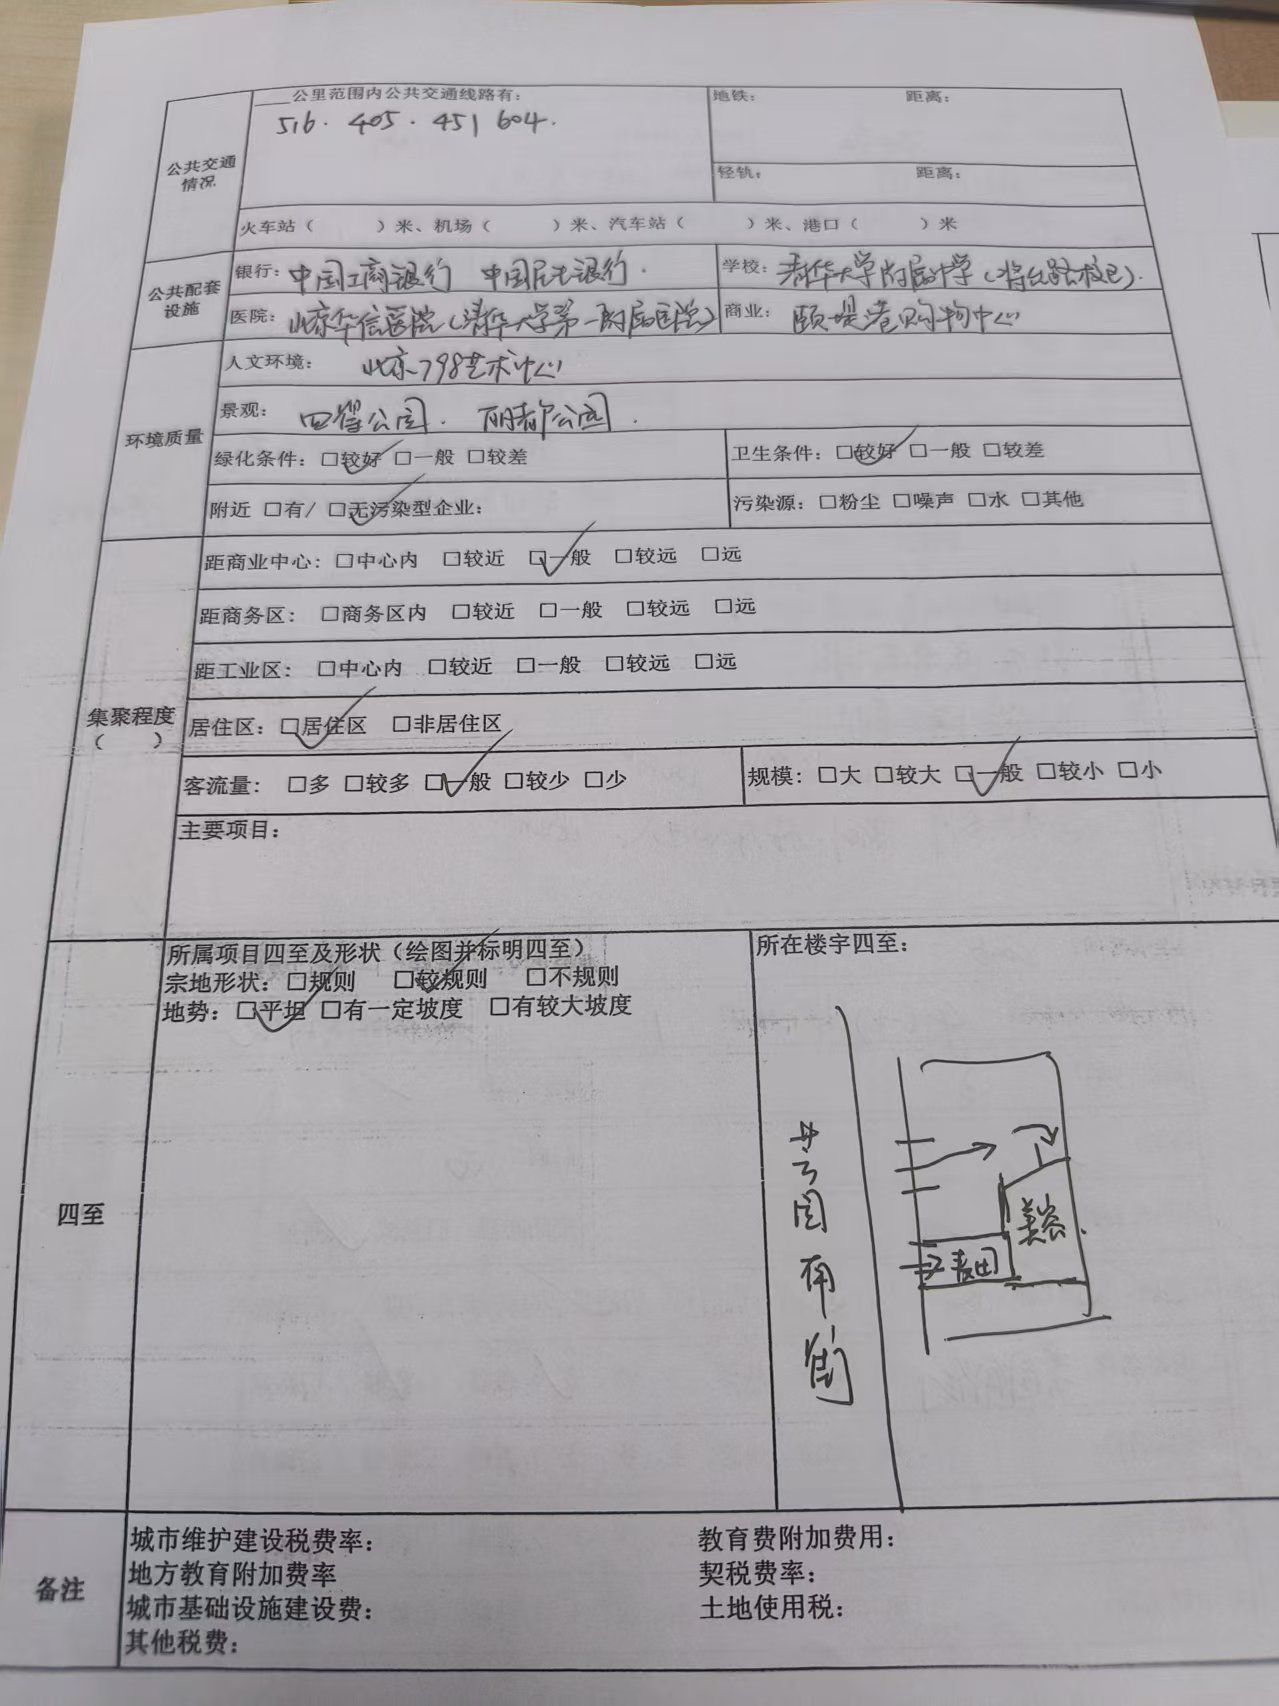 ____公里范围内公共交通线路有：
516. 405. 451 604.
地铁： 距离：
公共交通
情况
轻轨： 距离：
火车站（ ）米、机场（ ）米、汽车站（ ）米、港口（ ）米
公共配套
设施
银行：中国工商银行 中国民生银行.
学校：清华大学附属中学（将台路校区）.
医院：北京华信医院（清华大学第一附属医院）
商业：颐堤港购物中心
环境质量
人文环境： 北京798艺术中心
景观： 四得公园. 丽都公园.
绿化条件：□较好 □一般 □较差
卫生条件：□较好 □一般 □较差
附近 □有/ □无污染型企业：
污染源：□粉尘 □噪声 □水 □其他
集聚程度
（ ）
距商业中心：□中心内 □较近 □一般 □较远 □远
距商务区： □商务区内 □较近 □一般 □较远 □远
距工业区： □中心内 □较近 □一般 □较远 □远
居住区：□居住区 □非居住区
客流量： □多 □较多 □一般 □较少 □少
规模：□大 □较大 □一般 □较小 □小
主要项目：
四至
所属项目四至及形状（绘图并标明四至）
宗地形状：□规则 □较规则 □不规则
地势：□平坦 □有一定坡度 □有较大坡度
所在楼宇四至：
芳园南街
麦田
备注
城市维护建设税费率： 教育费附加费用：
地方教育附加费率 契税费率：
城市基础设施建设费： 土地使用税：
其他税费：